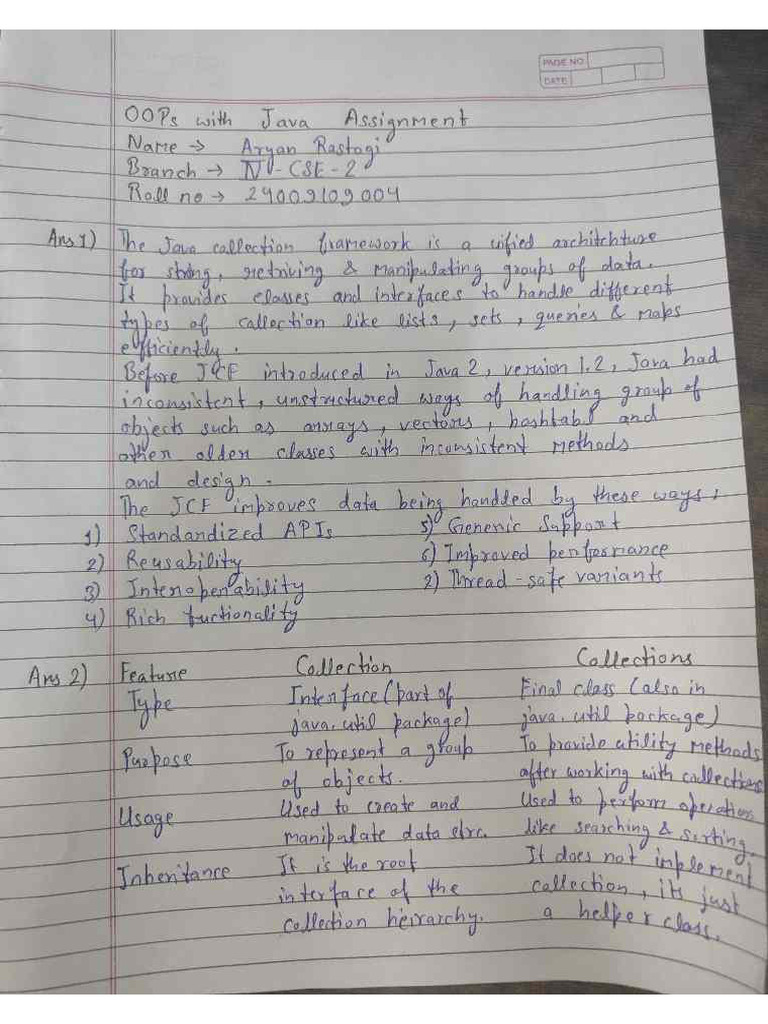 PAGE NO
DATE
OOPs with Java Assignment
Name → Aryan Rastogi
Branch → N-CSE-2
Roll no → 24009109004
Ans 1) The Java collection framework is a uified architchture
for string, retriving & manipulating groups of data.
It provides classes and interfaces to handle different
types of collection like lists, sets, queries & maps
efficiently.
Before JCF introduced in Java 2, version 1.2, Java had
inconsistent, unstructured ways of handling group of
objects such as arrays, vectors, hashtabl and
other older classes with inconsistent methods
and design.
The JCF improves data being handled by these ways,
1) Standardized APIs 5) Generic Support
2) Reusability 6) Improved performance
3) Interoperability 7) Thread-safe variants
4) Rich fuctionality
Ans 2) Feature Collection Collections
Type Interface (part of Final class (also in
java.util package) java.util package)
Purpose To represent a group To provide utility methods
of objects. after working with collections
Usage Used to create and Used to perform operation
manipulate data strc. like searching & sorting.
Inheritance It is the root It does not implement
interface of the collection, its just
collection heirarchy. a helper class.